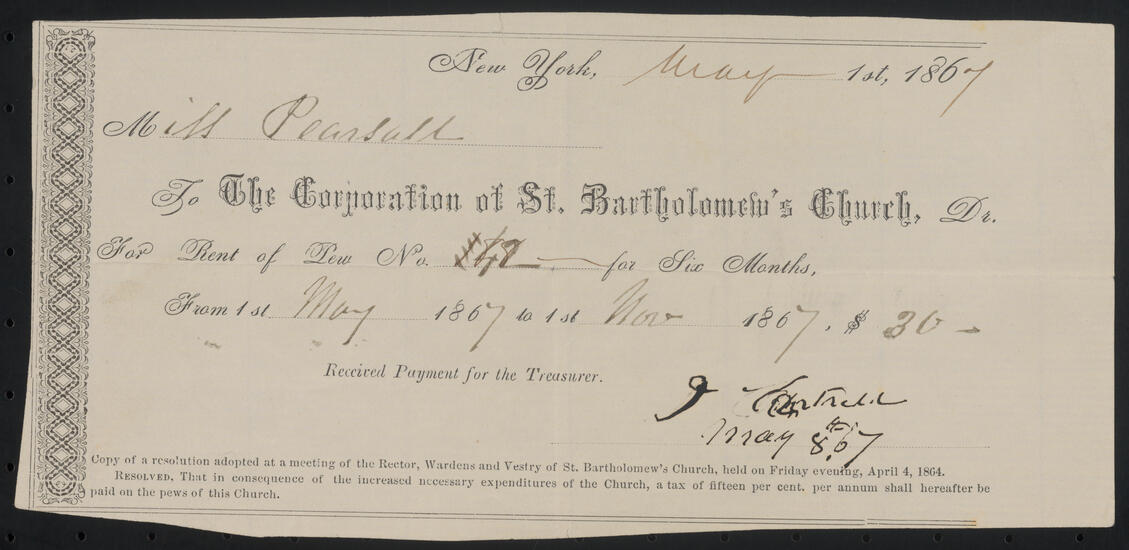 New York, May 1st, 1867
Miss Pearsall
To The Corporation of St. Bartholomew's Church, Dr.
For Rent of Pew No. for Six Months,
From 1st May 1867 to 1st Nov 1867, $ 30 -
Received Payment for the Treasurer.
May 8th, 67
Copy of a resolution adopted at a meeting of the Rector, Wardens and Vestry of St. Bartholomew's Church, held on Friday evening, April 4, 1864.
RESOLVED, That in consequence of the increased necessary expenditures of the Church, a tax of fifteen per cent. per annum shall hereafter be
paid on the pews of this Church.